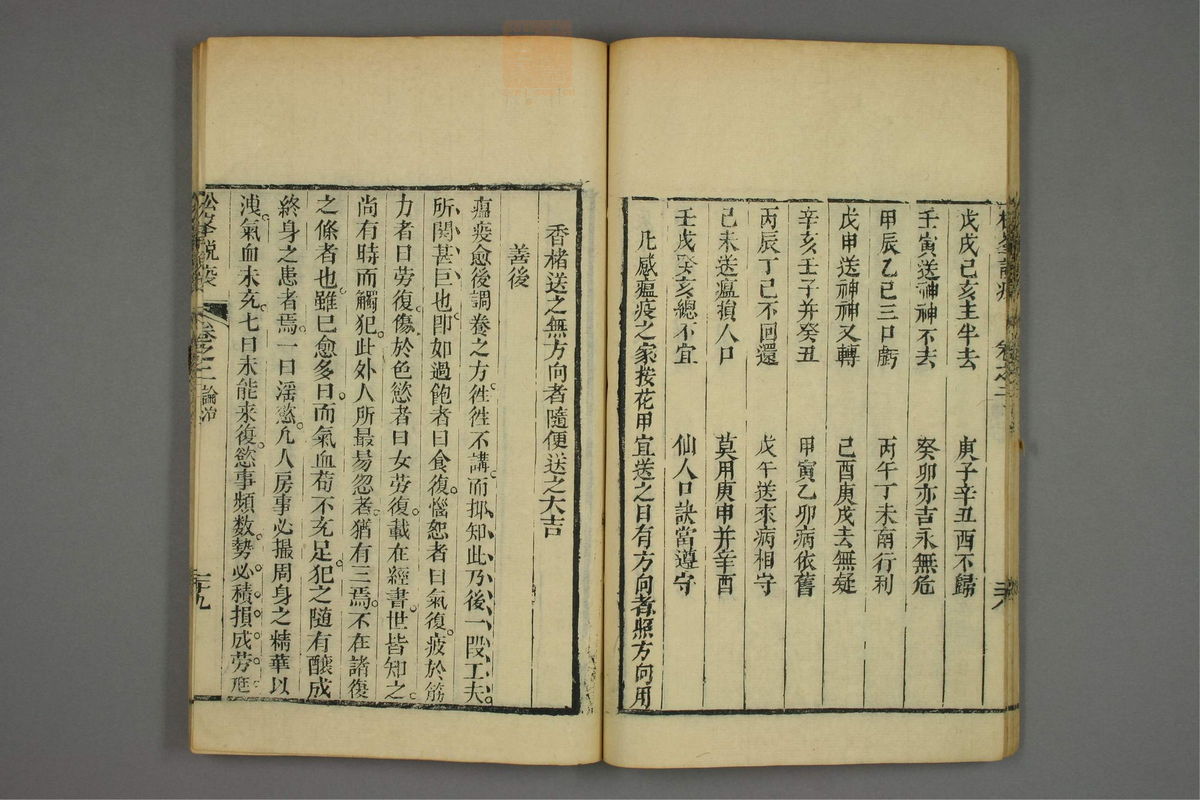 戊戌己亥主半去 庚子辛丑酉不歸
壬寅送神神不去 癸卯亦吉永無危
甲辰乙己三口虧 丙午丁未南行利
戊申送神神又轉 己酉庚戌去無疑
辛亥壬子并癸丑 甲寅乙卯病依舊
丙辰丁己不回還 戊午送來病相守
己未送瘟損人口 莫用庚申并辛酉
壬戌癸亥總不宜 仙人口訣當遵守
凡感瘟疫之家按花甲宜送之日有方向者照方向用
香楮送之無方向者隨便送之大吉
善後
瘟疫愈後調養之方。徃徃不講。而抑知此乃後一段工夫。
所關甚巨也。即如過飽者曰食復。惱怒者曰氣復。疲於筋
力者曰勞復。傷於色慾者曰女勞復。載在經書。世皆知之。
尚有時而觸犯。此外人所最易忽者。猶有三焉。不在諸復
之條者也。雖已愈多日。而氣血苟不充足。犯之隨有釀成
終身之患者焉。一曰淫慾。凡人房事必撮周身之精華以
洩。氣血未充。七日未能來復。慾事頻數。勢必積損成勞。尫
松峯說疫
卷之二
論治
三十九